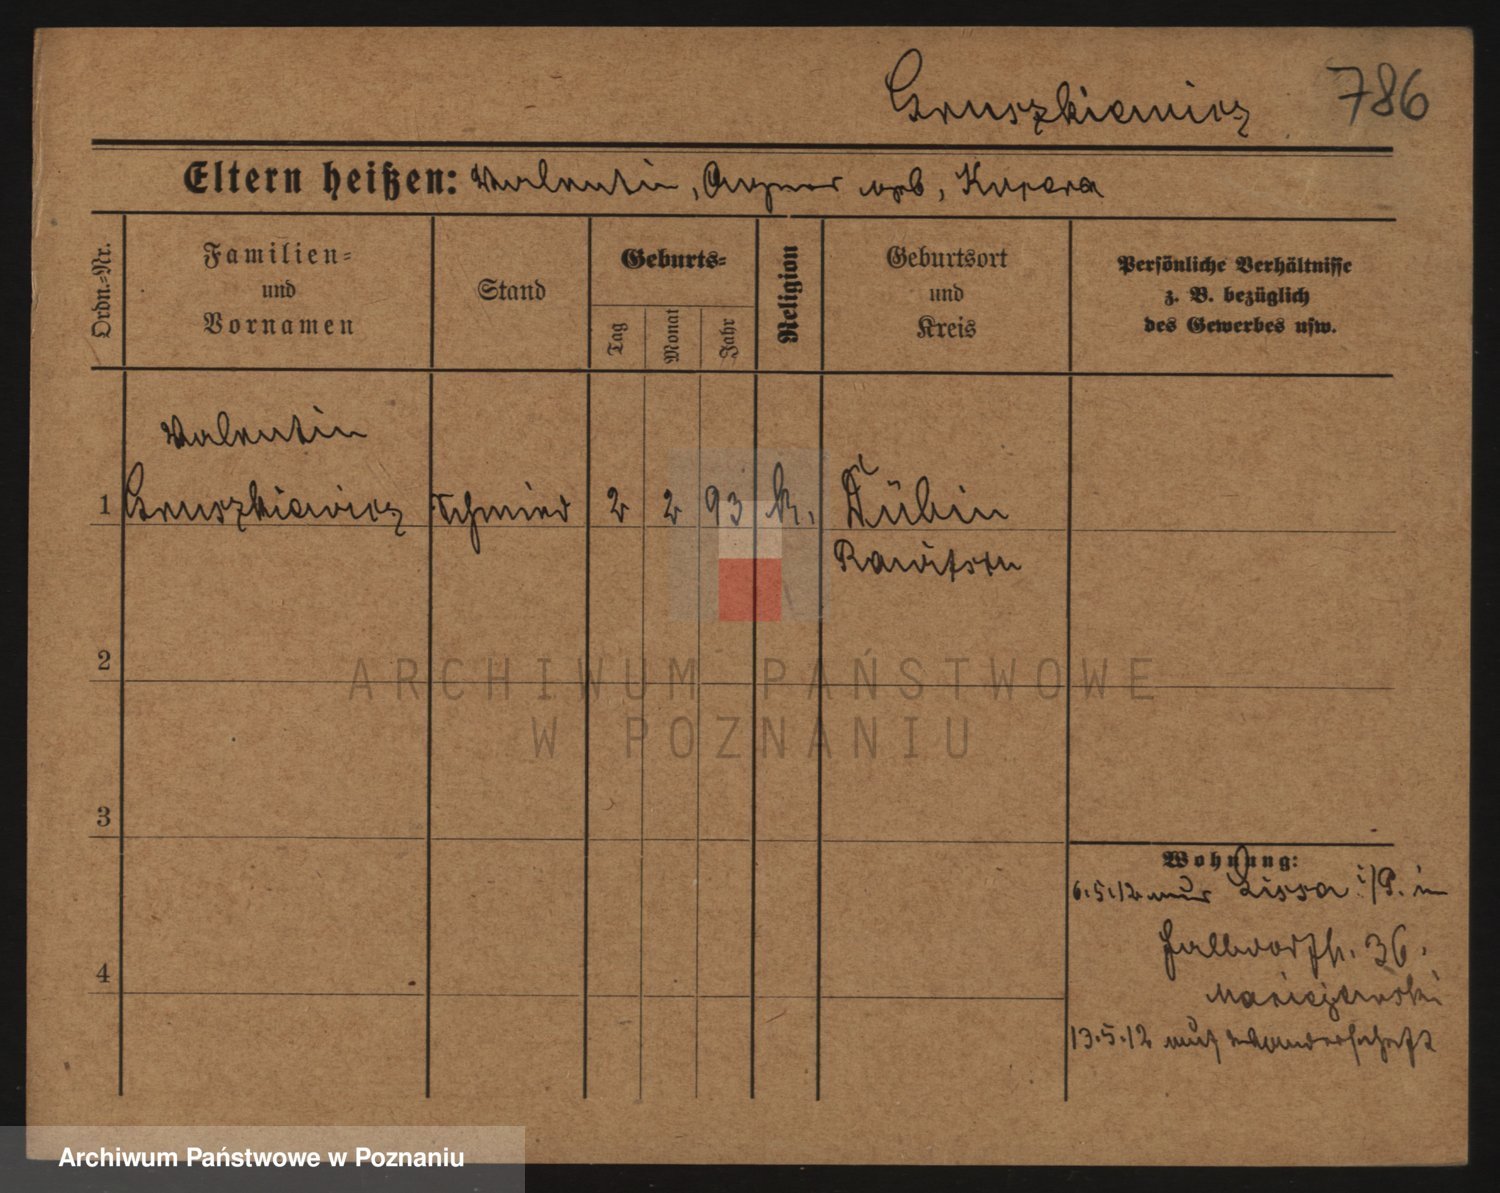 Gruszkiewicz 786
Eltern heißen: Valentin, Agnes geb, Kupera
Ordn.=Nr.
Familien=
und
Vornamen
Stand
Geburts=
Tag
Monat
Jahr
Religion
Geburtsort
und
Kreis
Persönliche Verhältnisse
z. B. bezüglich
des Gewerbes usw.
Valentin
1 Gruszkiewicz Schmied 2 2 93 k. Dubin
Rawitsch
2
3
4
Wohnung:
6.5.12 aus Lissa i/P. in
36.
13.5.12 auf Wanderschaft
ARCHIWUM PAŃSTWOWE
W POZNANIU
Archiwum Państwowe w Poznaniu